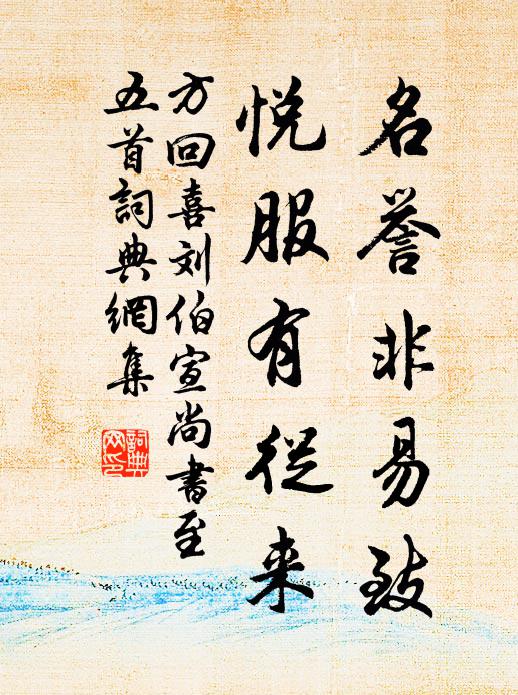 名誉非易致
悦服有従来
方回喜刘伯宣尚书至
五首詞典網集
詞典